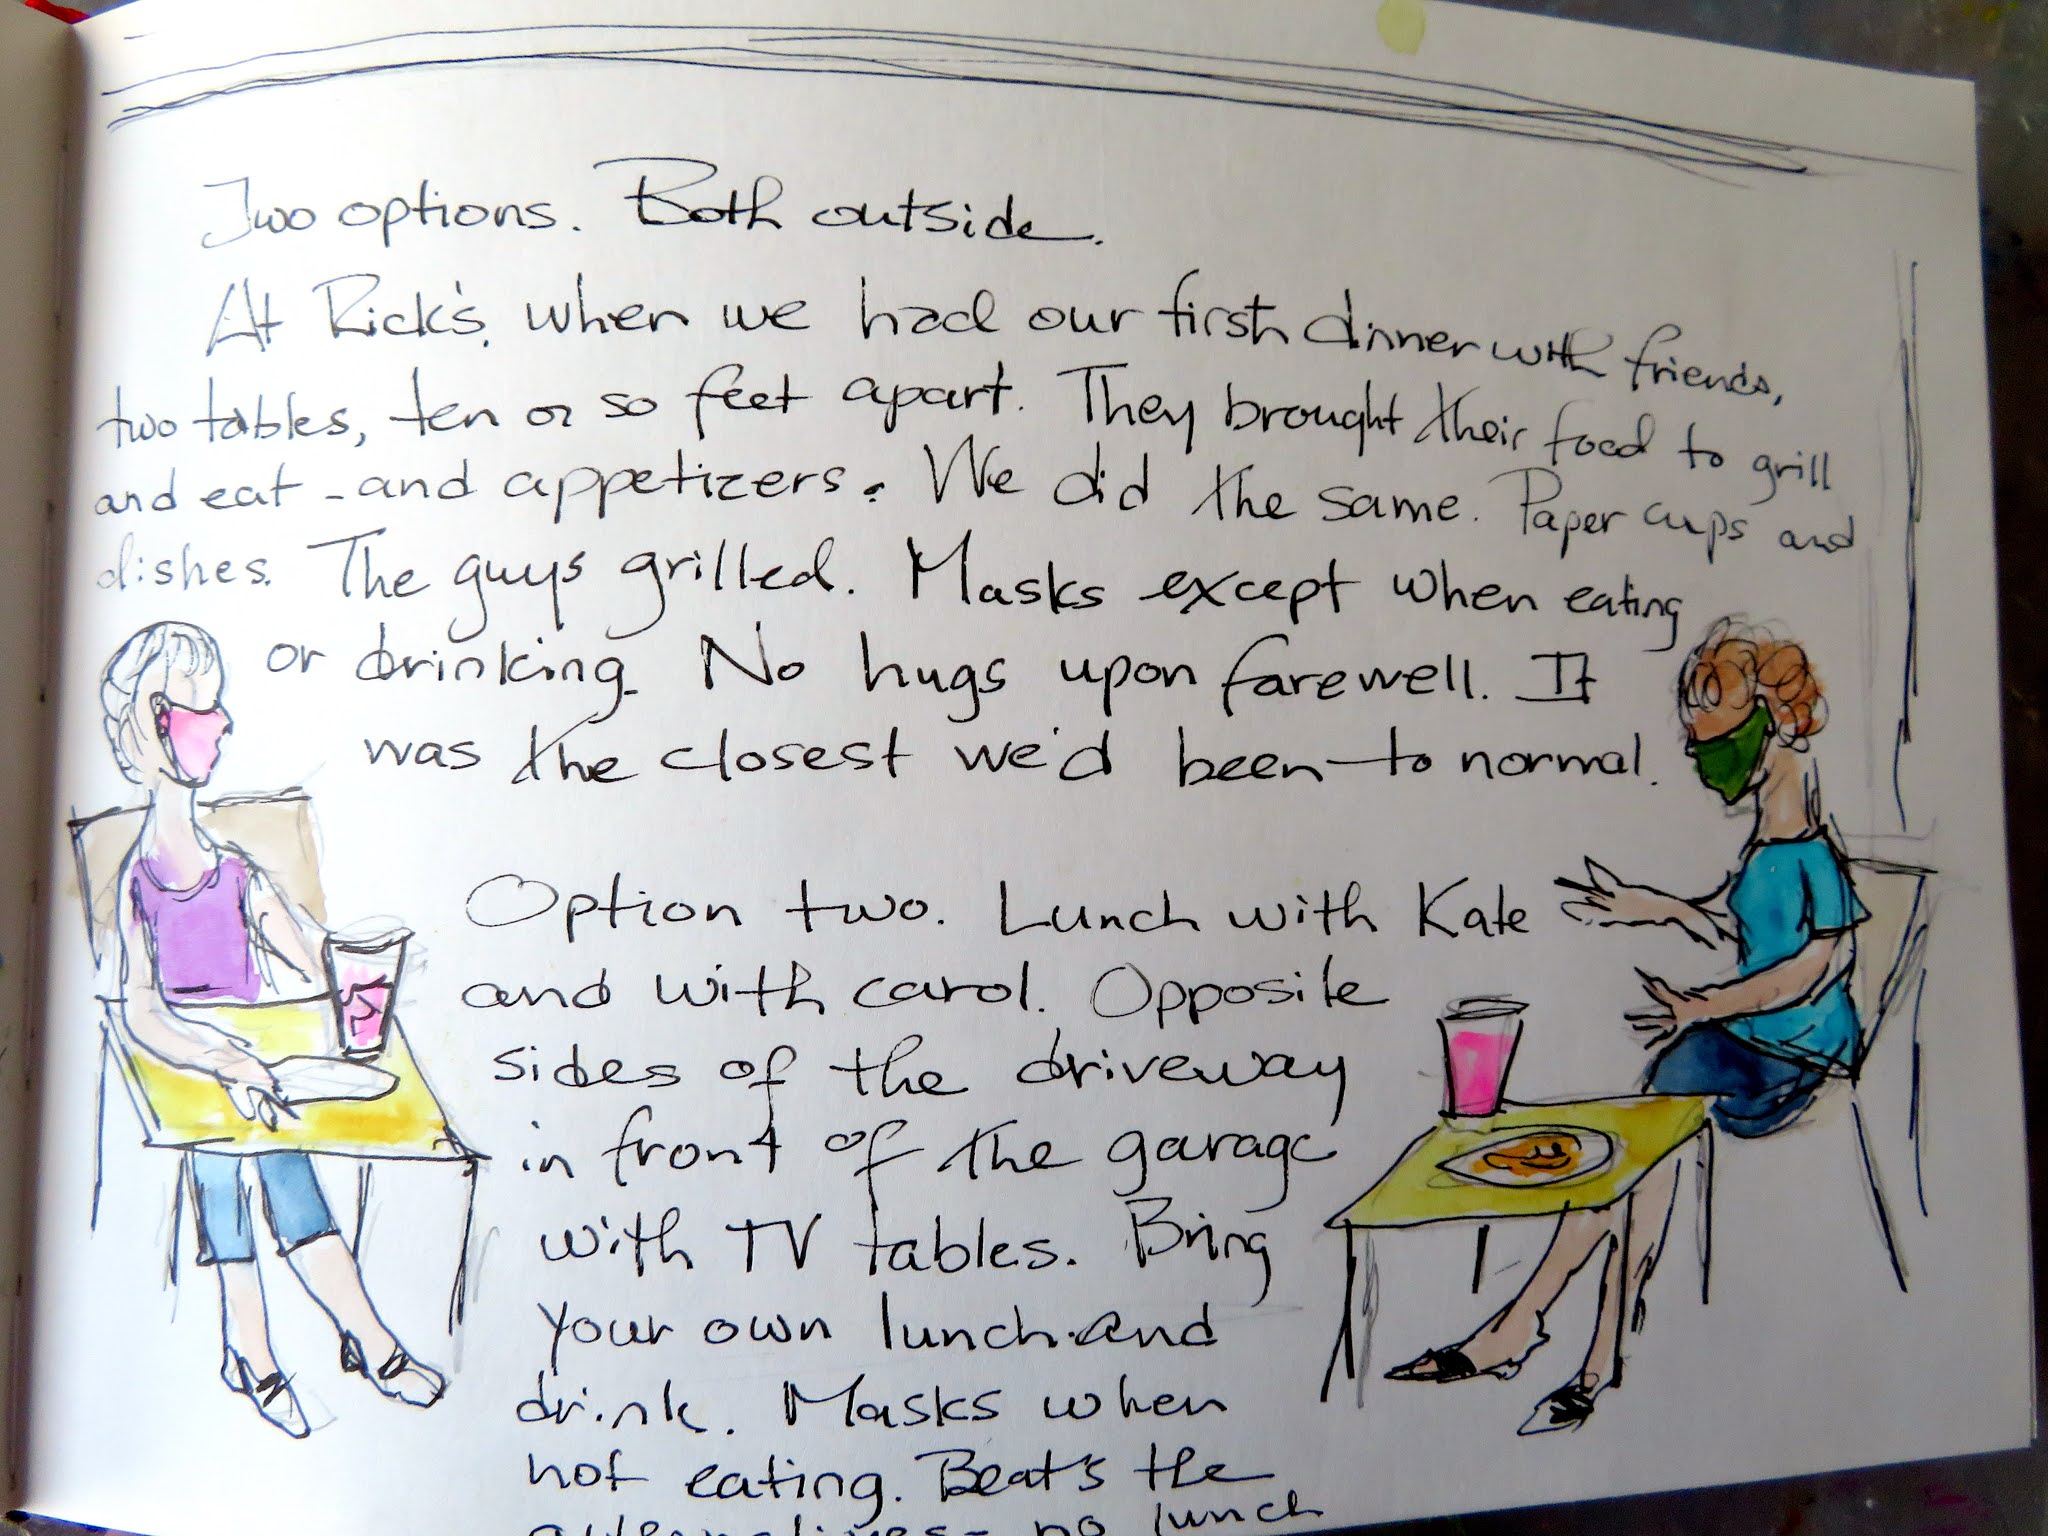 Two options. Both outside.
At Rick's, when we had our first dinner with friends,
two tables, ten or so feet apart. They brought their food to grill
and eat - and appetizers. We did the same. Paper cups and
dishes. The guys grilled. Masks except when eating
or drinking. No hugs upon farewell. It
was the closest we'd been to normal.
Option two. Lunch with Kate
and with Carol. Opposite
sides of the driveway
in front of the garage
with TV tables. Bring
your own lunch and
drink. Masks when
not eating. Beat's the
alternatives - no lunch